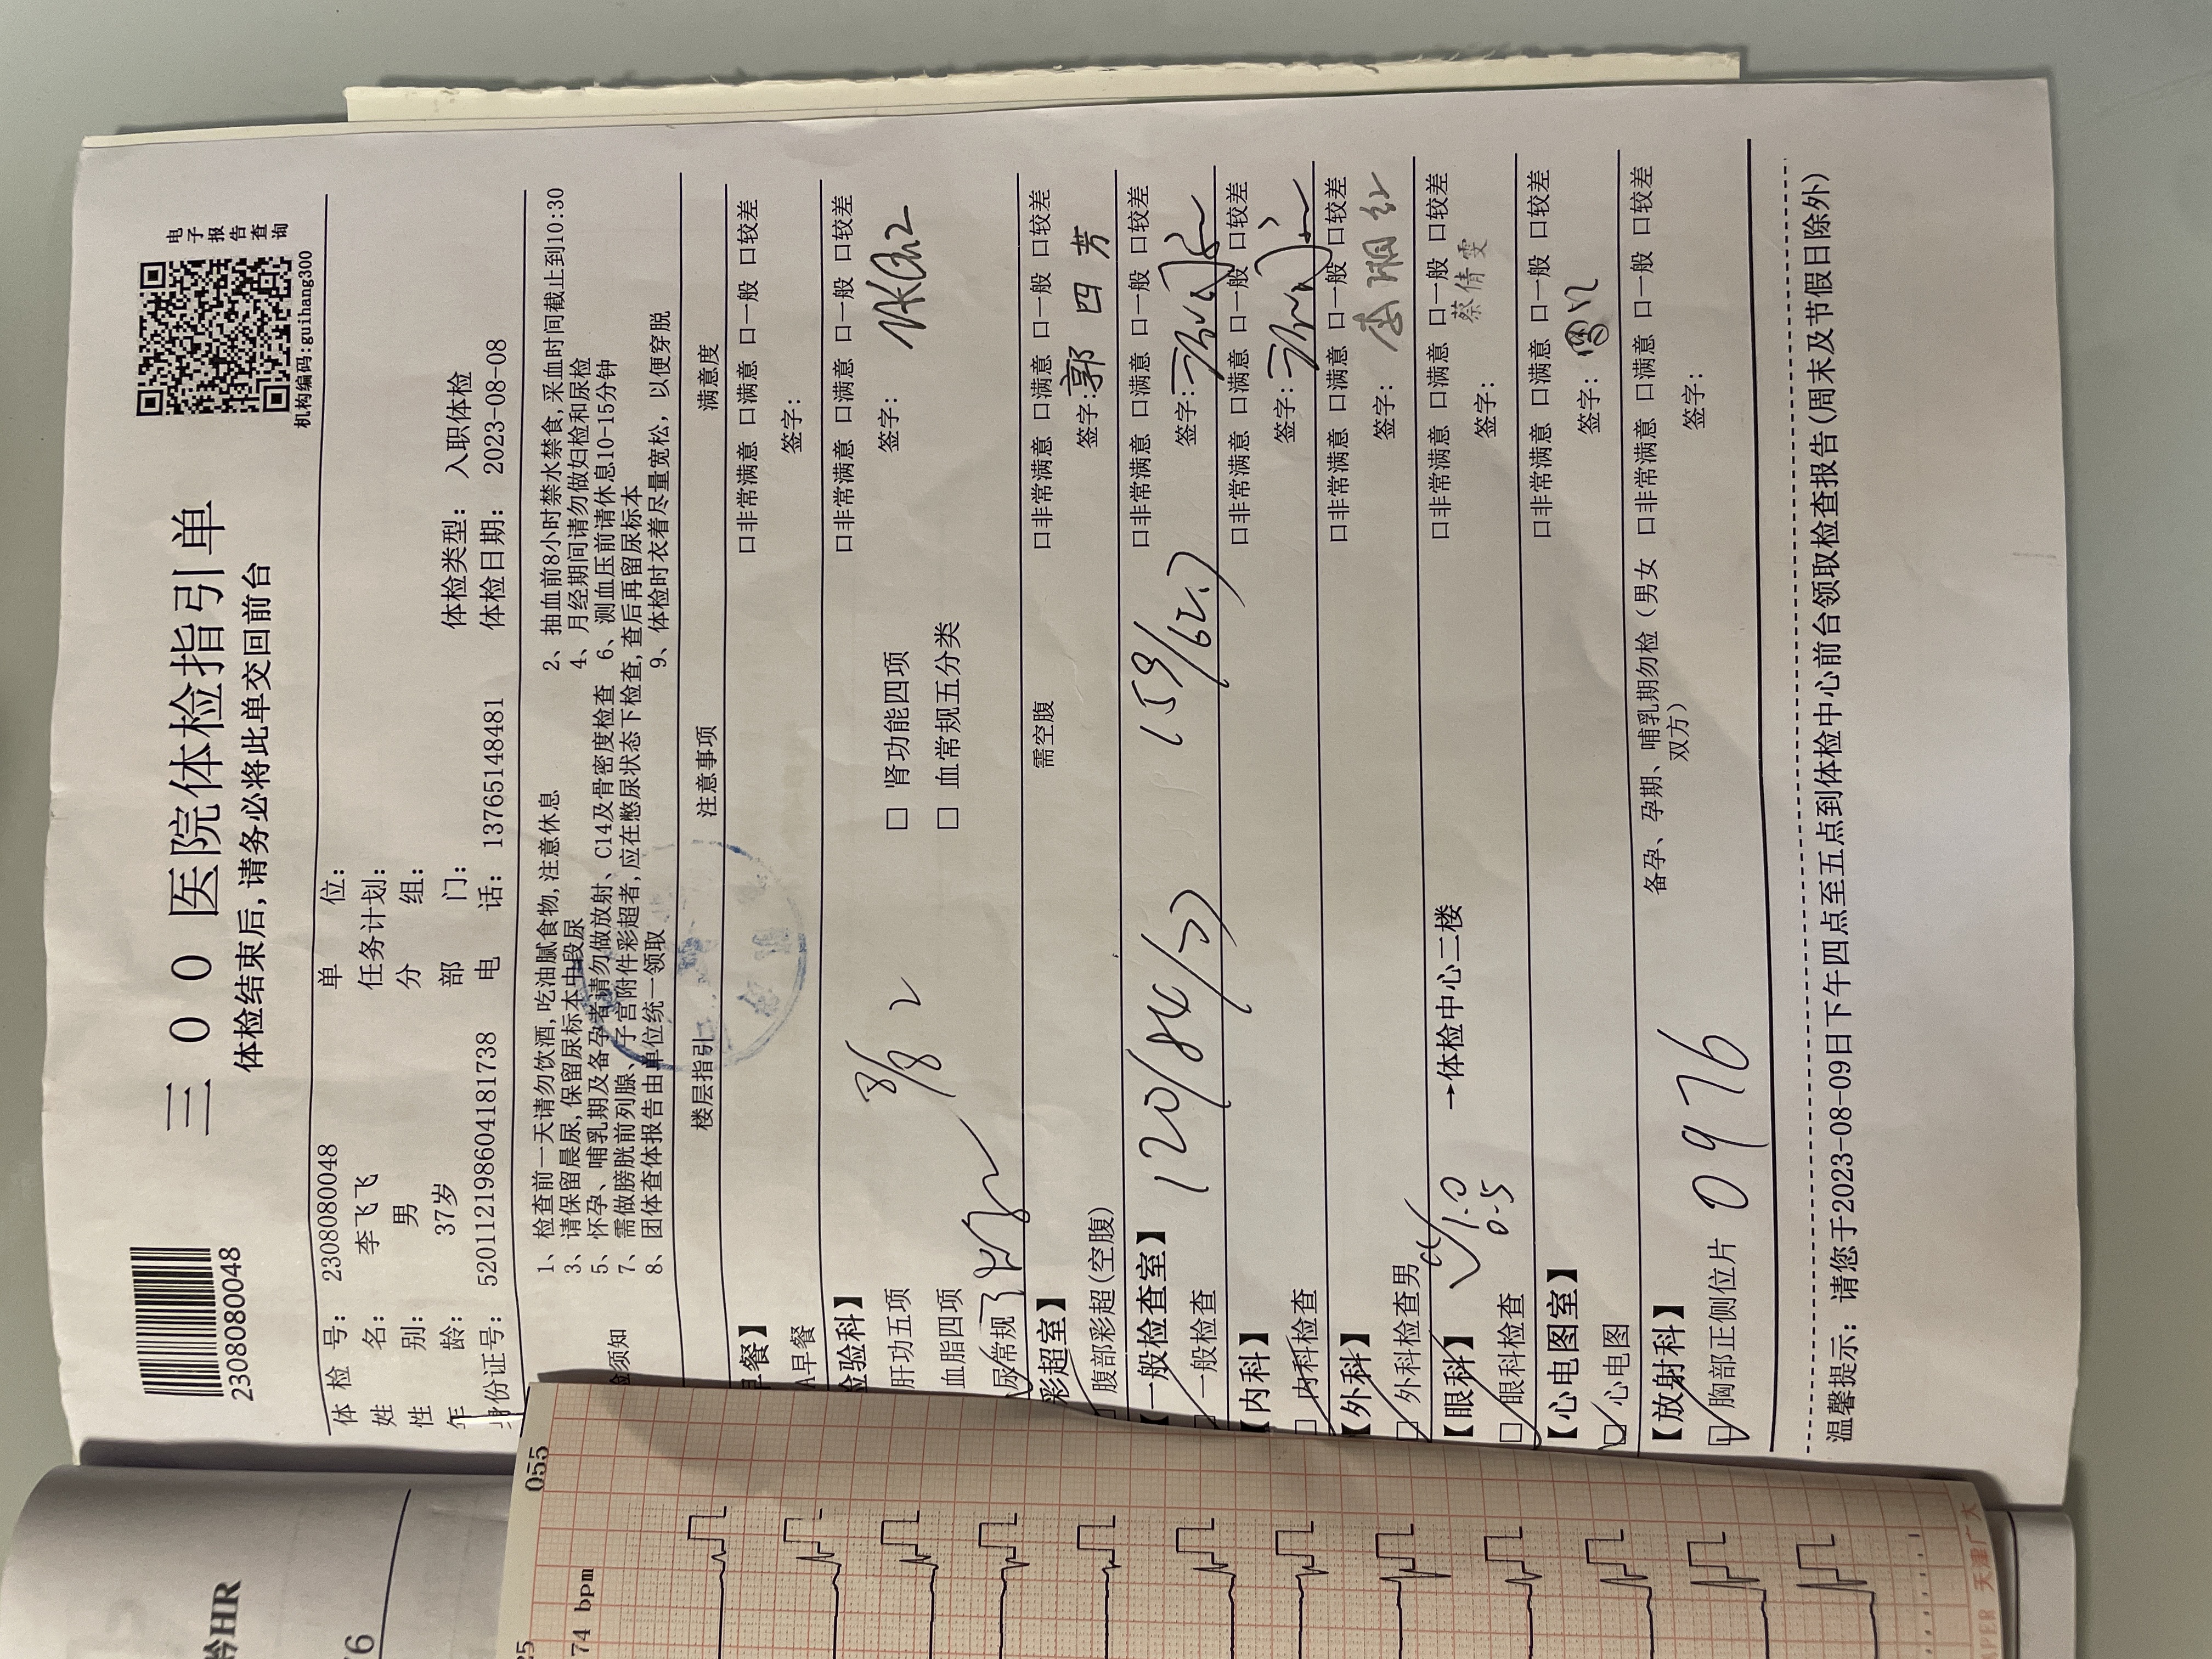 三00医院体检指引单
体检结束后,请务必将此单交回前台
2308080048
电子报告查询
机构编码:guihang300
体 检 号: 2308080048 单 位:
姓 名: 李飞飞 任务计划:
性 别: 男 分 组:
年 龄: 37岁 部 门: 体检类型: 入职体检
身份证号: 520112198604181738 电 话: 13765148481 体检日期: 2023-08-08
须知
1、检查前一天请勿饮酒,吃油腻食物,注意休息 2、抽血前8小时禁水禁食,采血时间截止到10:30
3、请保留晨尿,保留尿标本中段尿 4、月经期间请勿做妇检和尿检
5、怀孕、哺乳期及备孕者请勿做放射、C14及骨密度检查 6、测血压前请休息10-15分钟
7、需做膀胱前列腺、子宫附件彩超者,应在憋尿状态下检查,查后再留尿标本
8、团体查体报告由单位统一领取 9、体检时衣着尽量宽松,以便穿脱
楼层指引 注意事项 满意度
早餐】 口非常满意 口满意 口一般 口较差
A早餐 签字:
验科】 口非常满意 口满意 口一般 口较差
肝功五项 8/8 2 □ 肾功能四项 签字:
血脂四项 □ 血常规五分类
尿常规
彩超室】 需空腹 口非常满意 口满意 口一般 口较差
腹部彩超(空腹) 签字: 郭四芳
【一般检查室】 口非常满意 口满意 口一般 口较差
一般检查 120/84/ 159/62.7 签字:
【内科】 口非常满意 口满意 口一般 口较差
□ 内科检查 签字:
【外科】 口非常满意 口满意 口一般 口较差
□ 外科检查男 签字: 李湘红
【眼科】 1.0 →体检中心二楼 口非常满意 口满意 口一般 口较差
□ 眼科检查 0.5 签字: 蔡倩雯
【心电图室】 口非常满意 口满意 口一般 口较差
□ 心电图 签字:
【放射科】 备孕、孕期、哺乳期勿检(男女双方) 口非常满意 口满意 口一般 口较差
□ 胸部正侧位片 0976 签字:
温馨提示: 请您于2023-08-09日下午四点至五点到体检中心前台领取检查报告(周末及节假日除外)
055
74 bpm
HR
天津广大